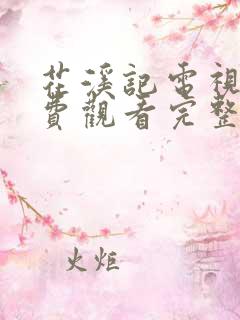 茌溪記電視
費觀看完整
火炬